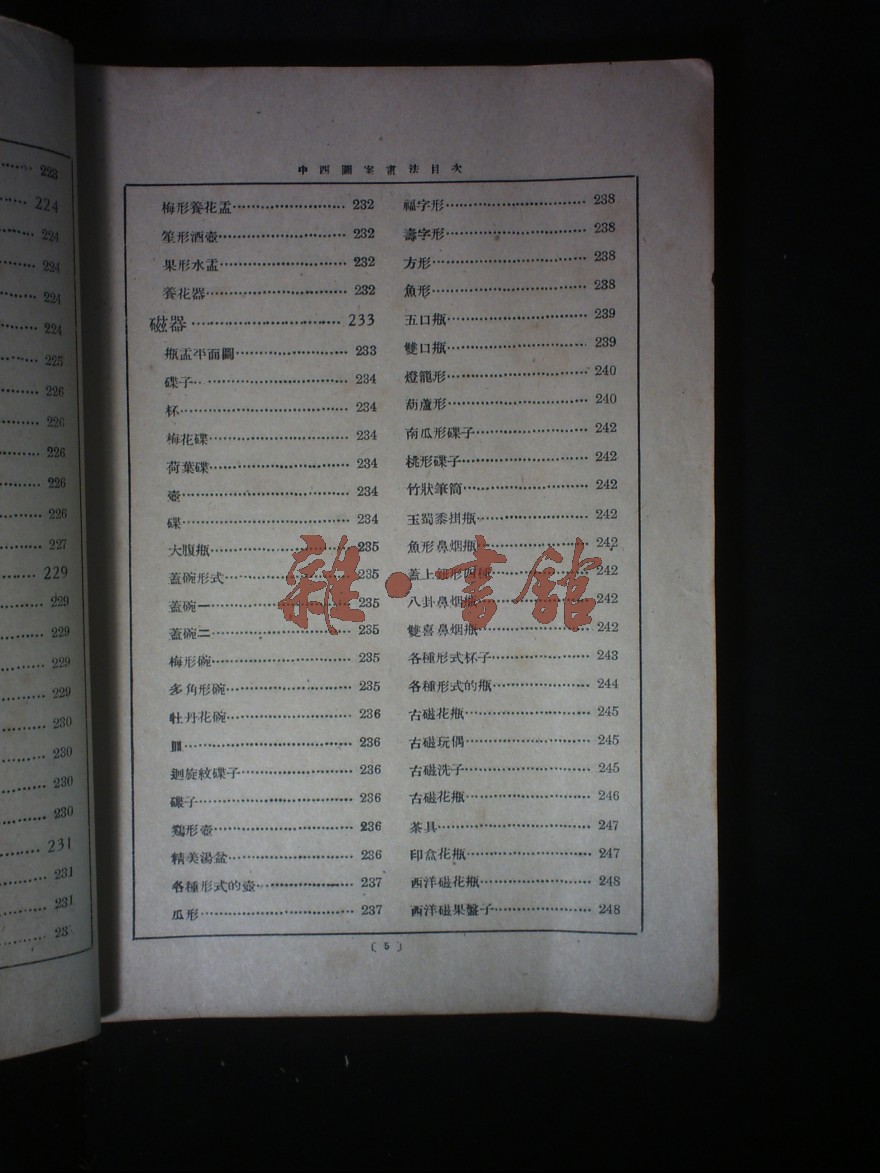 223
224
224
224
224
224
225
226
226
226
226
226
227
229
229
229
229
229
230
230
230
230
231
231
231
23
中西圖案畫法目次
梅形養花盂 232
笙形酒壺 232
果形水盂 232
養花器 232
磁器 233
瓶盂平面圖 233
碟子 234
杯 234
梅花碟 234
荷葉碟 234
壺 234
碟 234
大腹瓶 235
蓋碗形式 235
蓋碗一 235
蓋碗二 235
梅形碗 235
多角形碗 235
牡丹花碗 236
皿 236
迴旋紋碟子 236
碟子 236
鷄形壺 236
精美湯盆 236
各種形式的壺 237
瓜形 237
福字形 238
壽字形 238
方形 238
魚形 238
五口瓶 239
雙口瓶 239
燈籠形 240
葫蘆形 240
南瓜形碟子 242
桃形碟子 242
竹狀筆筒 242
玉蜀黍掛瓶 242
魚形鼻烟瓶 242
蓋上鈕形四種 242
八卦鼻烟瓶 242
雙喜鼻烟瓶 242
各種形式杯子 243
各種形式的瓶 244
古磁花瓶 245
古磁玩偶 245
古磁洗子 245
古磁花瓶 246
茶具 247
印盒花瓶 247
西洋磁花瓶 248
西洋磁果盤子 248
〔5〕
雜·書館